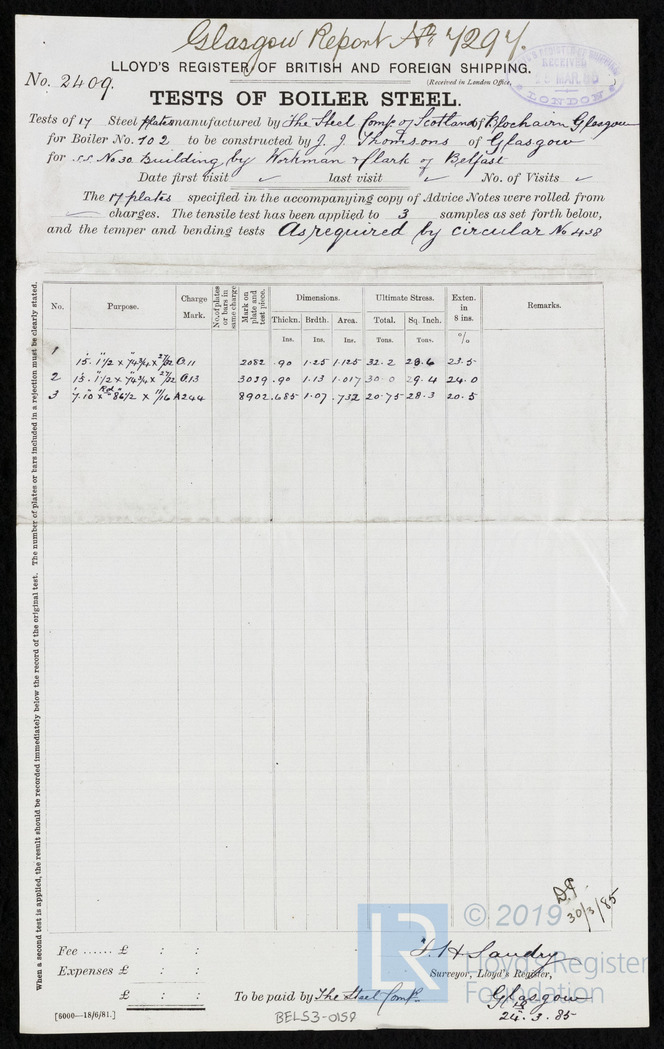 Glasgow Report No 7297.
LLOYD'S REGISTER OF BRITISH AND FOREIGN SHIPPING.
No. 2409.
(Received in London Office,
RECEIVED
MAR. 85
LONDON
TESTS OF BOILER STEEL.
Tests of 17 Steel plates manufactured by The Steel Comp of Scotland of Blochairn Glasgow
for Boiler No. 702 to be constructed by J. J. Thomsons of Glasgow
for s.s. No 30 Building by Workman & Clark of Belfast
Date first visit ✓ last visit ✓ No. of Visits ✓
The 17 plates specified in the accompanying copy of Advice Notes were rolled from
charges. The tensile test has been applied to 3 samples as set forth below,
and the temper and bending tests As required by circular No 438
When a second test is applied, the result should be recorded immediately below the record of the original test. The number of plates or bars included in a rejection must be clearly stated.
No. Purpose. Charge Mark. No. of plates or bars in same charge Mark on plate and test piece. Dimensions. Ultimate Stress. Exten. in 8 ins. Remarks.
Thickn. Brdth. Area. Total. Sq. Inch.
Ins. Ins. Ins. Tons. Tons. %
1 15. 1 1/2 x 74 3/4 x 27/32 2082 .90 1.25 1.125 32.2 28.6 23.5
2 15. 1 1/2 x 74 3/4 x 27/32 3039 .90 1.13 1.017 30.0 29.4 24.0
3 7.10 x 86 1/2 x 11/16 A244 8902 .685 1.07 .732 20.75 28.3 20.5
30/3/85
© 2019
Lloyd's Register
Foundation
LR
Fee ...... £ : :
Expenses £ : :
£ : :
[5000—18/6/81.]
To be paid by The Steel Comp.
Surveyor, Lloyd's Register,
Glasgow
24.3.85
BELS3-0158